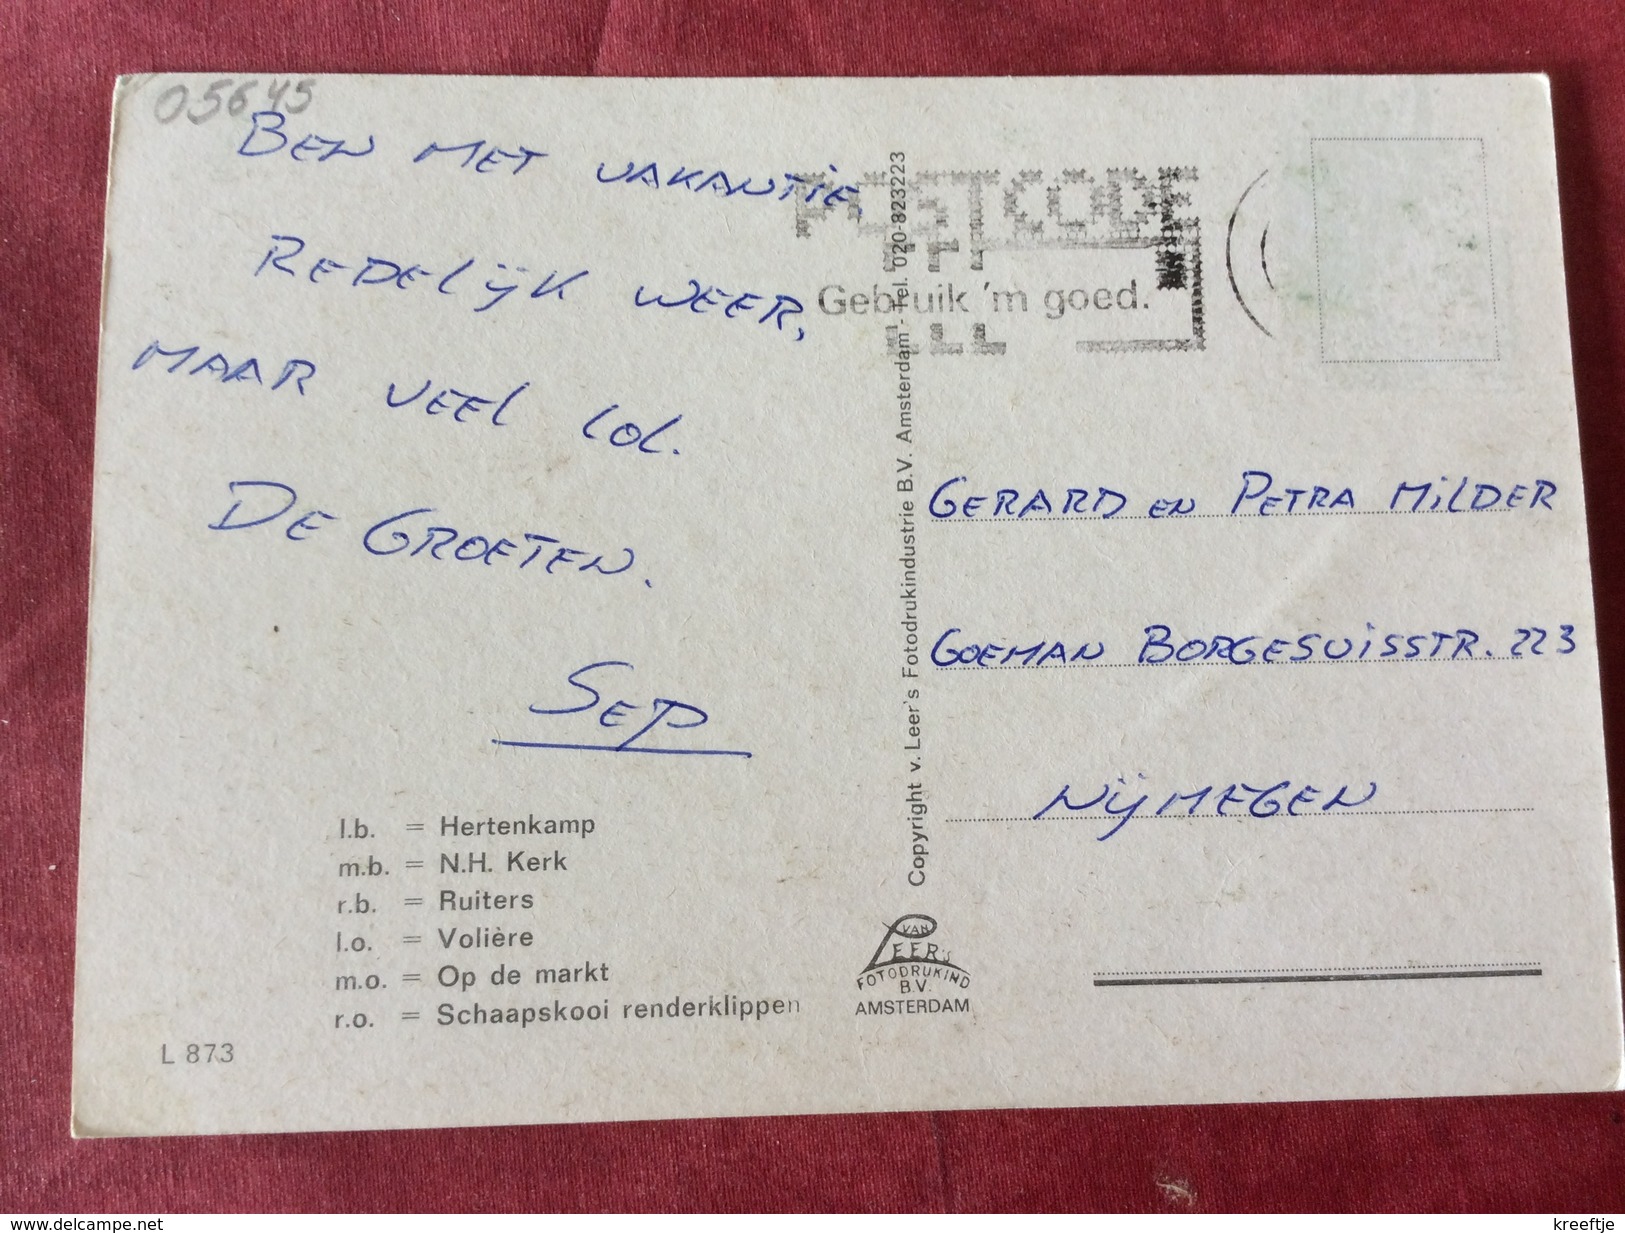 05645
BEN MET VAKANTIE,
REDELIJK WEER,
MAAR VEEL LOL.
DE GROETEN.
SEP
l.b. = Hertenkamp
m.b. = N.H. Kerk
r.b. = Ruiters
l.o. = Volière
m.o. = Op de markt
r.o. = Schaapskooi renderklippen
L 873
Copyright v. Leer's Fotodrukindustrie B.V. Amsterdam - Tel. 020-823223
VAN
LEER'S
FOTODRUKIND
B.V.
AMSTERDAM
POSTKODE
Gebruik 'm goed.
GERARD EN PETRA MILDER
GOEMAN BORGESUISSTR. 223
NIJMEGEN
www.delcampe.net
kreeftje